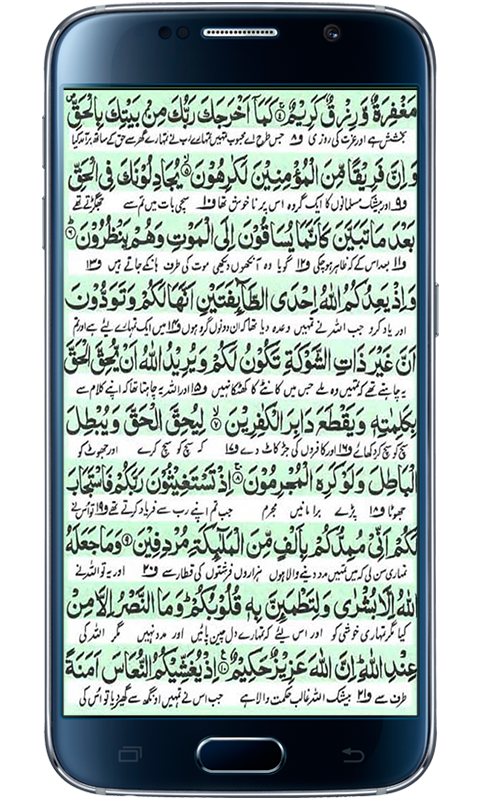 مَغْفِرَةٌ وَّرِزْقٌ كَرِيْمٌ ۴ كَمَاۤ اَخْرَجَكَ رَبُّكَ مِنْۢ بَيْتِكَ بِالْحَقِّ
بخشش ہے اور عزت کی روزی ف۸ جس طرح اے محبوب تمہیں تمہارے رب نے تمہارے گھر سے حق کے ساتھ برآمد کیا
وَاِنَّ فَرِيْقًا مِّنَ الْمُؤْمِنِيْنَ لَكٰرِهُوْنَ ۵ يُجَادِلُوْنَكَ فِي الْحَقِّ
ف۹ اور بیشک مسلمانوں کا ایک گروہ اس پر ناخوش تھا ف۱۰ سچی بات میں تم سے جھگڑتے تھے
بَعْدَ مَا تَبَيَّنَ كَاَنَّمَا يُسَاقُوْنَ اِلَى الْمَوْتِ وَهُمْ يَنْظُرُوْنَ ۶
ف۱۱ بعد اس کے کہ ظاہر ہوچکی ف۱۲ گویا وہ آنکھوں دیکھی موت کی طرف ہانکے جاتے ہیں ف۱۳
وَاِذْ يَعِدُكُمُ اللّٰهُ اِحْدَى الطَّآئِفَتَيْنِ اَنَّهَا لَكُمْ وَتَوَدُّوْنَ
اور یاد کرو جب اللہ نے تمہیں وعدہ دیا تھا کہ ان دونوں گروہوں ف۱۴ میں ایک تمہارے لیے ہے اور تم
اَنَّ غَيْرَ ذَاتِ الشَّوْكَةِ تَكُوْنُ لَكُمْ وَيُرِيْدُ اللّٰهُ اَنْ يُّحِقَّ الْحَقَّ
یہ چاہتے تھے کہ تمہیں وہ ملے جس میں کانٹے کا کھٹکا نہیں ف۱۵ اور اللہ یہ چاہتا تھا کہ اپنے کلام سے
بِكَلِمٰتِهٖ وَيَقْطَعَ دَابِرَ الْكٰفِرِيْنَ ۷ لِيُحِقَّ الْحَقَّ وَيُبْطِلَ
سچ کو سچ کر دکھائے ف۱۶ اور کافروں کی جڑ کاٹ دے ف۱۷ کہ سچ کو سچ کرے اور جھوٹ کو
الْبَاطِلَ وَلَوْ كَرِهَ الْمُجْرِمُوْنَ ۸ اِذْ تَسْتَغِيْثُوْنَ رَبَّكُمْ فَاسْتَجَابَ
جھوٹا ف۱۸ پڑے برا مانیں مجرم جب تم اپنے رب سے فریاد کرتے تھے ف۱۹ تو اس نے
لَكُمْ اَنِّيْ مُمِدُّكُمْ بِاَلْفٍ مِّنَ الْمَلٰٓئِكَةِ مُرْدِفِيْنَ ۹ وَمَا جَعَلَهُ
تمہاری سن لی کہ میں تمہیں مدد دینے والا ہوں ہزاروں فرشتوں کی قطار سے ف۲۰ اور یہ تو اللہ نے
اللّٰهُ اِلَّا بُشْرٰى وَلِتَطْمَئِنَّ بِهٖ قُلُوْبُكُمْ وَمَا النَّصْرُ اِلَّا مِنْ
کیا مگر تمہاری خوشی کو اور اس لیے کہ تمہارے دل چین پائیں اور مدد نہیں مگر اللہ کی
عِنْدِ اللّٰهِ اِنَّ اللّٰهَ عَزِيْزٌ حَكِيْمٌ ۱۰ اِذْ يُغَشِّيْكُمُ النُّعَاسَ اَمَنَةً
طرف سے ف۲۱ بیشک اللہ غالب حکمت والا ہے جب اس نے تمہیں اونگھ سے گھیر دیا تو اس کی